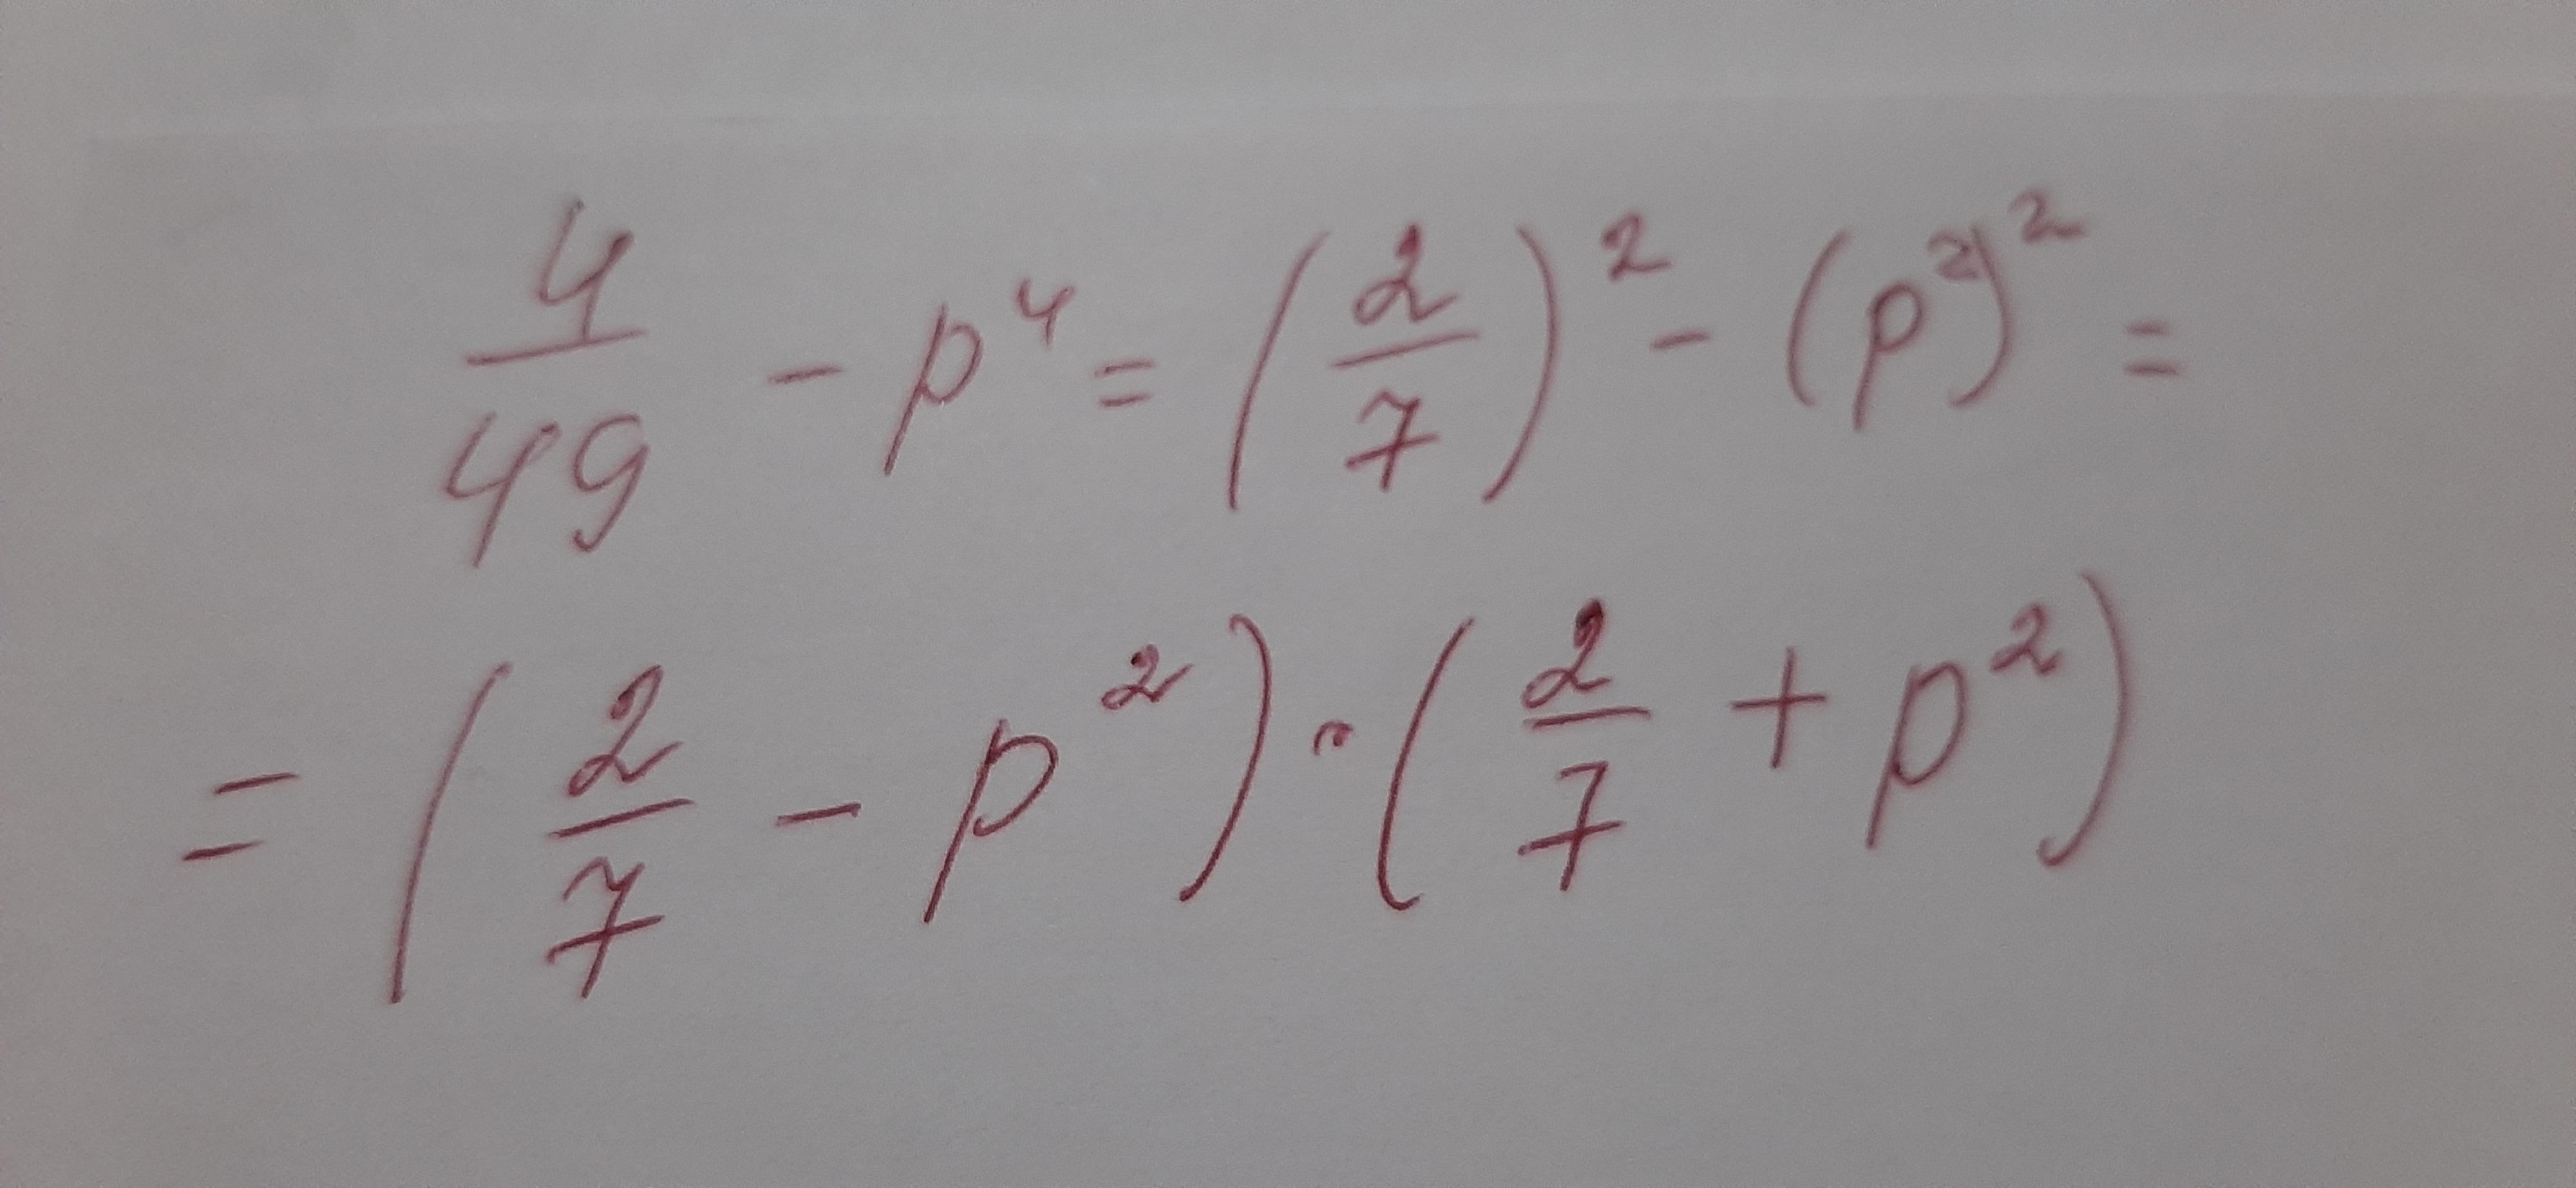 4/49 - p⁴ = (2/7)² - (p²)² =
= (2/7 - p²) · (2/7 + p²)